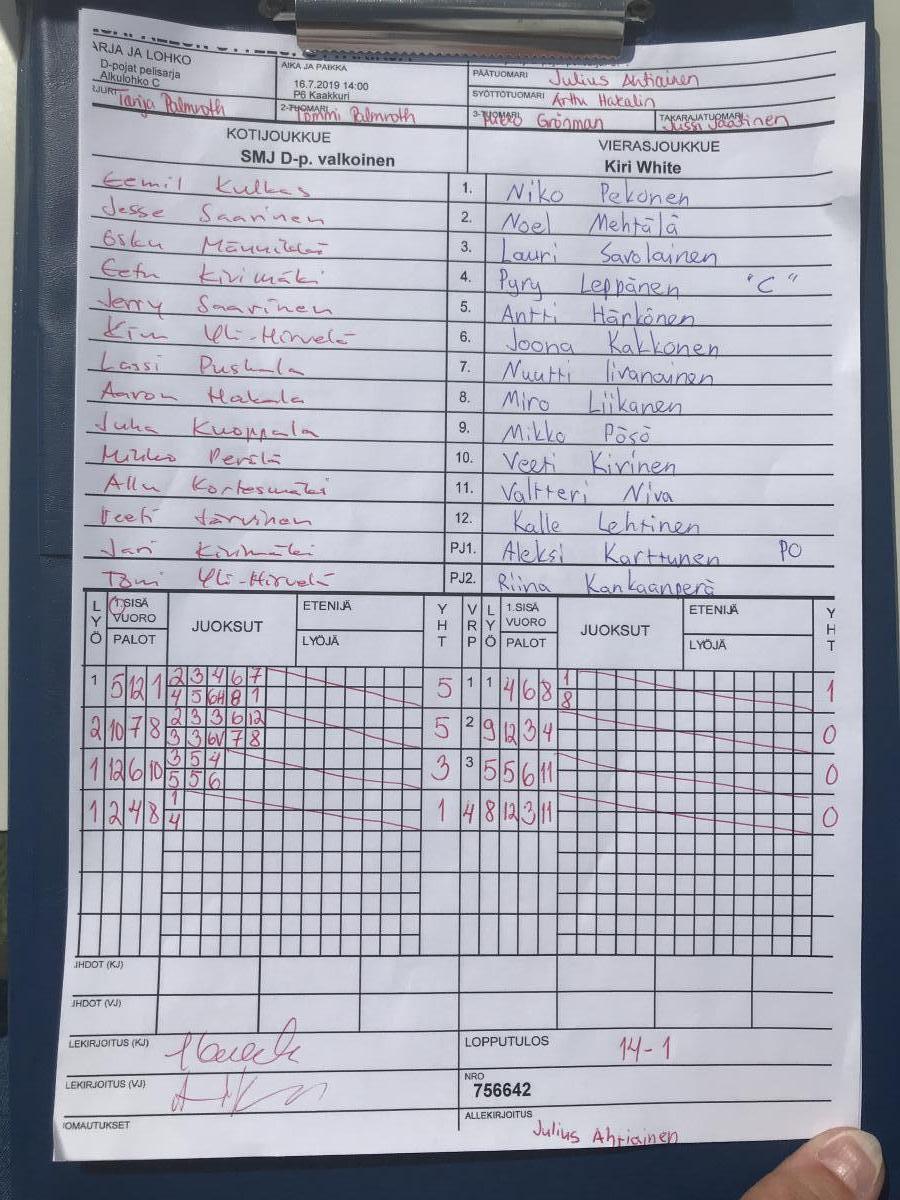 ARJA JA LOHKO
D-pojat pelisarja
Alkulohko C
AIKA JA PAIKKA
16.7.2019 14:00
P6 Kaakkuri
PÄÄTUOMARI Julius Ahtiainen
SYÖTTÖTUOMARI Arttu Hakalin
Tarja Palmroth
2-TUOMARI Tommi Palmroth
3-TUOMARI Mikko Grönman
TAKARAJATUOMARI Jussi Jaatinen
KOTIJOUKKUE
SMJ D-p. valkoinen
VIERASJOUKKUE
Kiri White
Eemil Kulkas 1. Niko Pekonen
Jesse Saarinen 2. Noel Mehtälä
Osku Männikkö 3. Lauri Savolainen
Eetu Kivimäki 4. Pyry Leppänen "C"
Jerry Saarinen 5. Antti Härkönen
Kim Yli-Hirvelä 6. Joona Kakkonen
Lassi Puskala 7. Nuutti Iivanainen
Aaron Hakala 8. Miro Liikanen
Juha Kuoppala 9. Mikko Pösö
Mikko Perälä 10. Veeti Kirinen
Allu Kortesmäki 11. Valtteri Niva
Veeti Järvinen 12. Kalle Lehtinen
Jari Kivimäki PJ1. Aleksi Karttunen PO
Tomi Yli-Hirvelä PJ2. Riina Kankaanperä
LYÖ 1.SISÄ VUORO PALOT JUOKSUT ETENIJÄ LYÖJÄ YHT VRP LYÖ 1.SISÄ VUORO PALOT JUOKSUT ETENIJÄ LYÖJÄ YHT
1 5 12 1 2 3 4 6 7 5 1 1 4 6 8 1 1
4 5 6H 8 1 8
2 10 7 8 2 3 3 6 12 5 2 9 12 3 4 0
3 3 6V 7 8
1 12 6 10 3 5 4 3 3 5 5 6 11 0
5 5 6
1 2 4 8 1 1 4 8 12 3 11 0
4
JHDOT (KJ)
JHDOT (VJ)
LEKIRJOITUS (KJ)
LOPPUTULOS 14-1
LEKIRJOITUS (VJ)
NRO
756642
OMAUTUKSET
ALLEKIRJOITUS
Julius Ahtiainen